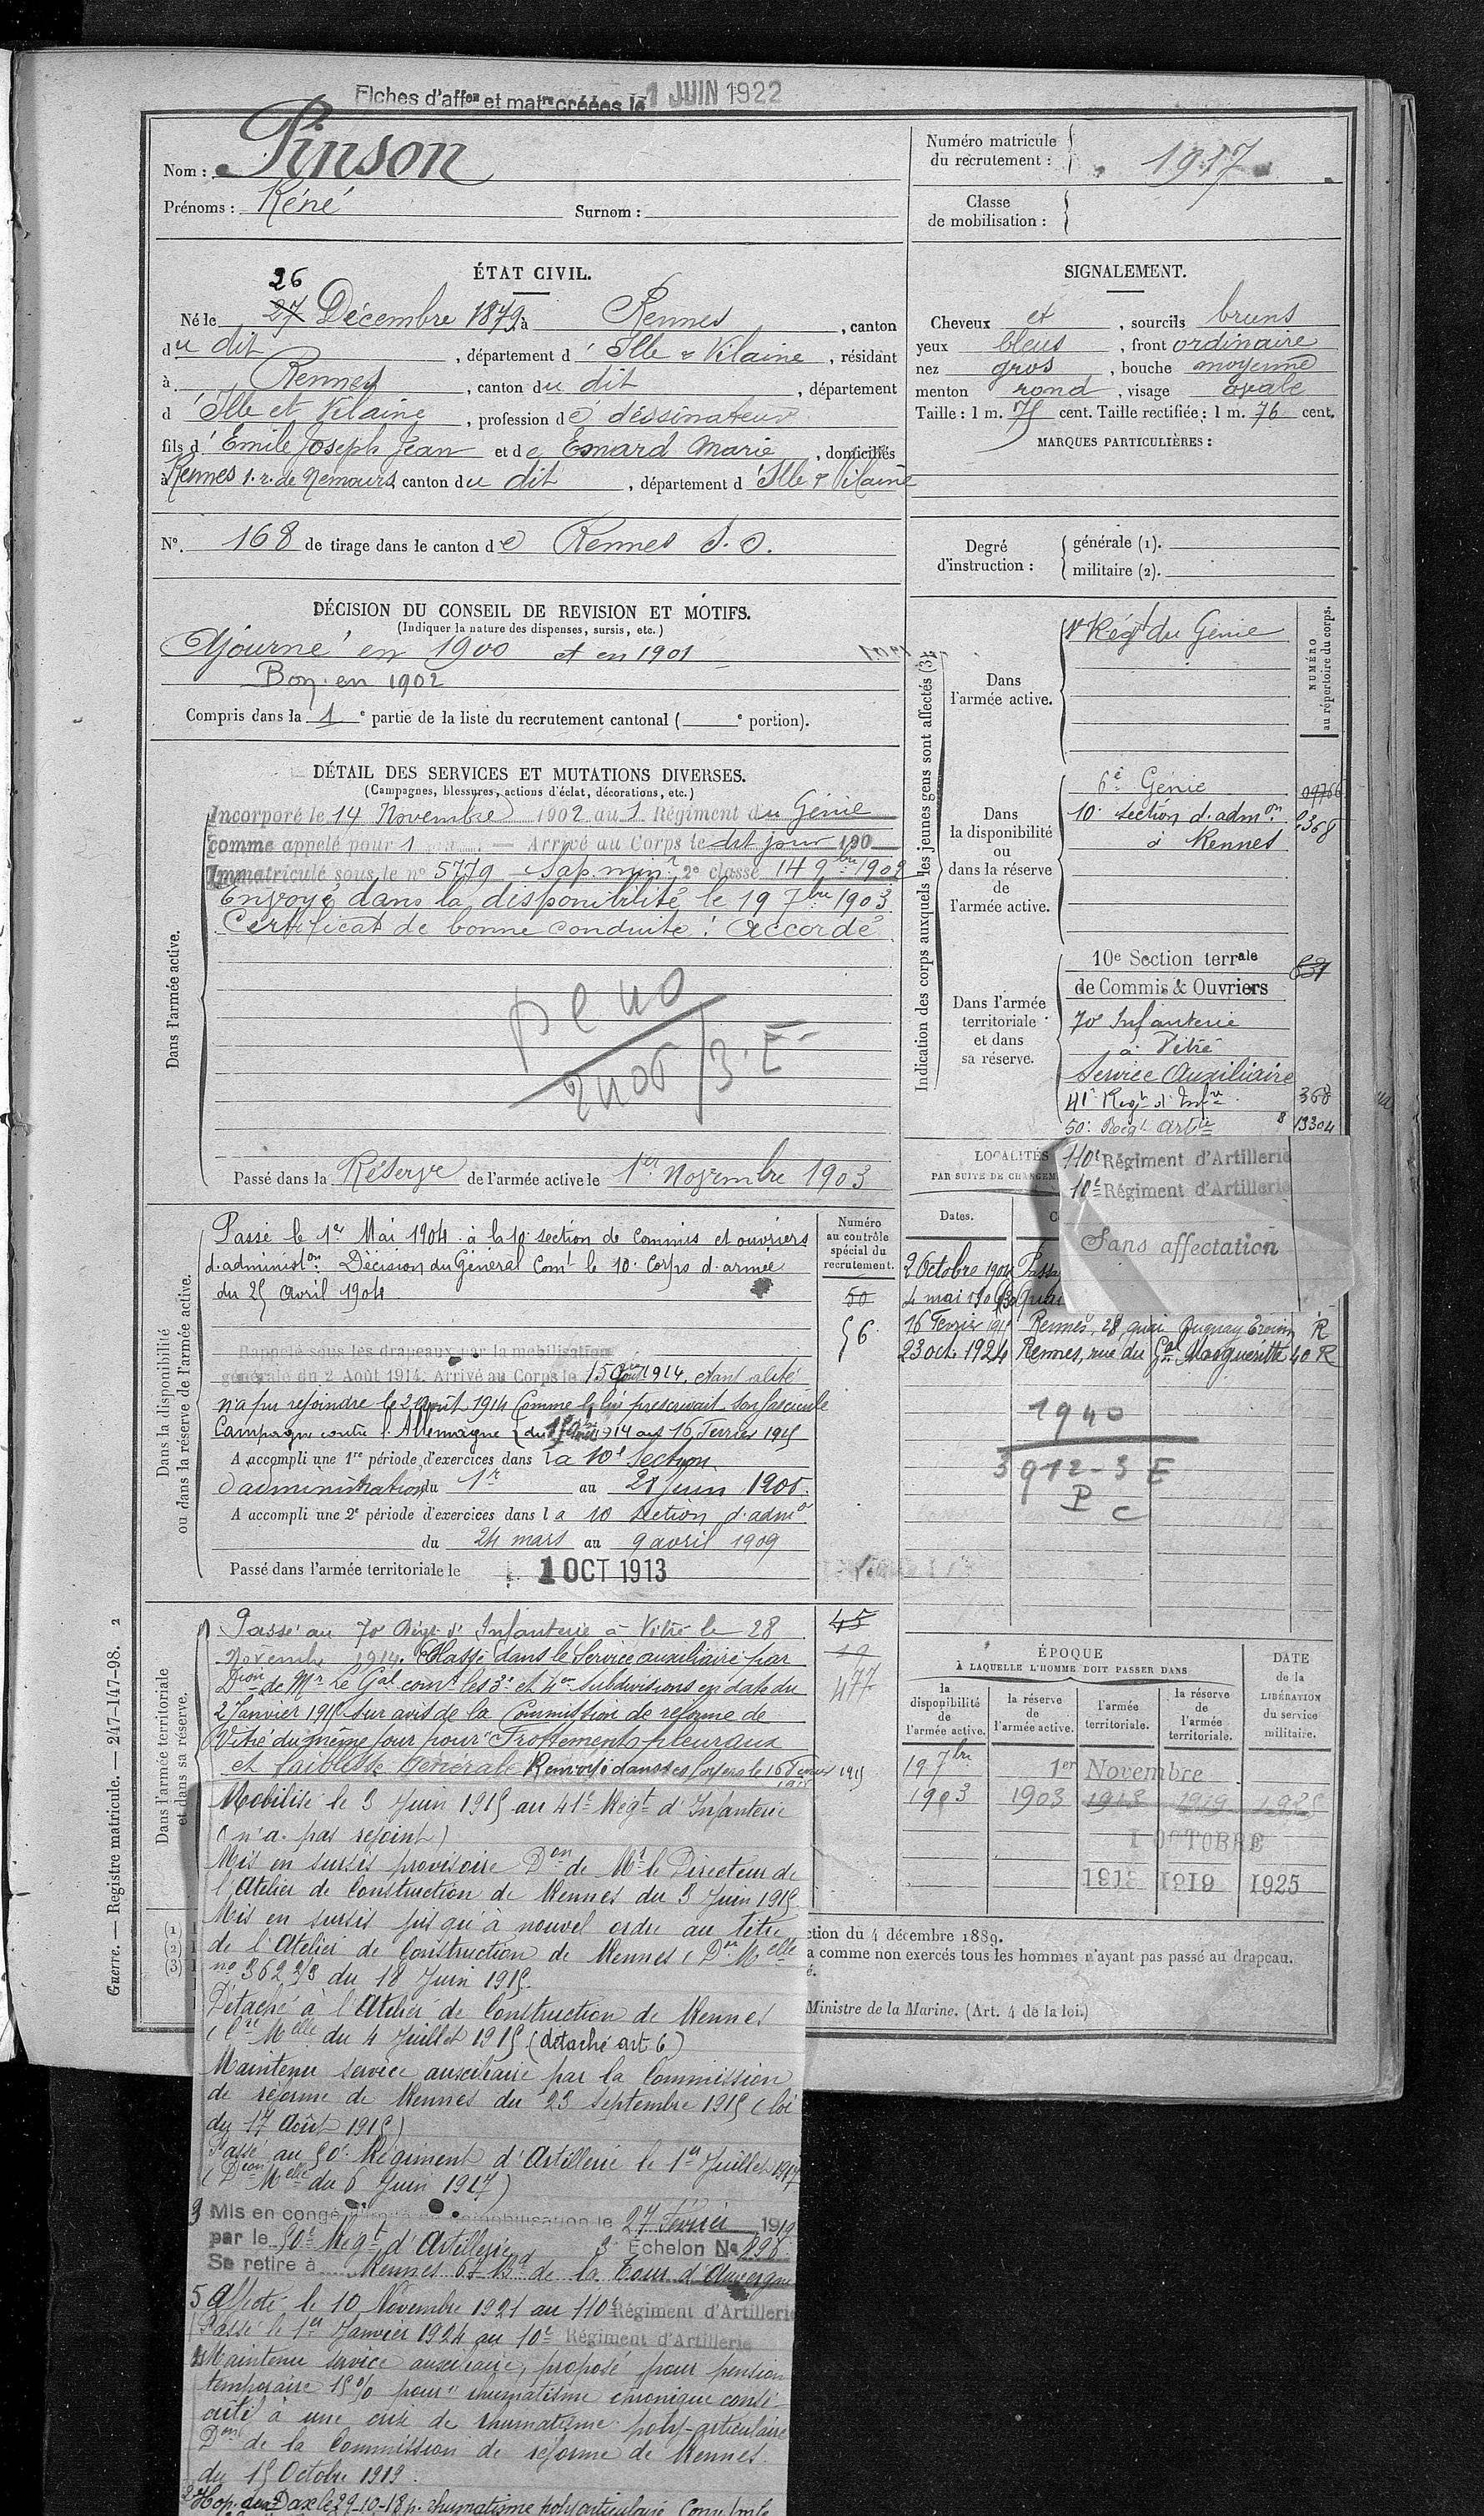 Fiches d'affon et matre créées le 1 JUIN 1922
Nom : Pinson
Prénoms : Réné Surnom :
Numéro matricule du recrutement : 1917
Classe de mobilisation :
ÉTAT CIVIL.
26
Né le 27 Décembre 1879, à Rennes, canton
du dit, département d'Ille & Vilaine, résidant
à Rennes, canton du dit, département
d'Ille et Vilaine, profession de dessinateur
fils d'Emile Joseph Jean et de Emard Marie, domiciliés
à Rennes 1. r. de Nemours, canton du dit, département d'Ille & Vilaine
N° 168 de tirage dans le canton de Rennes S. O.
SIGNALEMENT.
Cheveux et, sourcils bruns
yeux bleus, front ordinaire
nez gros, bouche moyenne
menton rond, visage ovale
Taille : 1 m. 75 cent. Taille rectifiée : 1 m. 76 cent.
MARQUES PARTICULIÈRES :
Degré d'instruction :
générale (1).
militaire (2).
DÉCISION DU CONSEIL DE REVISION ET MOTIFS.
(Indiquer la nature des dispenses, sursis, etc.)
Ajourné en 1900 et en 1901
Bon en 1902
Compris dans la 1e partie de la liste du recrutement cantonal ( e portion).
DÉTAIL DES SERVICES ET MUTATIONS DIVERSES.
(Campagnes, blessures, actions d'éclat, décorations, etc.)
Dans l'armée active.
Incorporé le 14 Novembre 1902 au 1 Régiment du Génie
comme appelé pour 1 — Arrivé au Corps le dit jour 190
Immatriculé sous le n° 5779 Sap. min. 2e classe 14 9bre 1902
Envoyé dans la disponibilité le 19 7bre 1903
Certificat de bonne conduite : Accordé
Passé dans la Réserve de l'armée active le 1er Novembre 1903
Indication des corps auxquels les jeunes gens sont affectés (3)
NUMÉRO au répertoire du corps.
Dans l'armée active.
1r Régt du Génie
Dans la disponibilité ou dans la réserve de l'armée active.
6e Génie
10e section d'admon 368
à Rennes
Dans l'armée territoriale et dans sa réserve.
10e Section terrale
de Commis & Ouvriers
70e Infanterie
à Vitré
Service Auxiliaire
41e Regt d'Infie 368
50e Regt Artie 13304
110e Régiment d'Artillerie
10e Régiment d'Artillerie
Sans affectation
LOCALITÉS
PAR SUITE DE CHANGEM
Dates.
2 Octobre 1904 Passa
4 mai 190
16 Fevrier 1915 Rennes, 28 quai Duguay Trouin R
23 oct. 1924 Rennes, rue du Gal Margueritte 40 R
1940
3912-3 E
P C
Dans la disponibilité ou dans la réserve de l'armée active.
Numéro au contrôle spécial du recrutement.
50
56
Passé le 1er Mai 1904 à la 10e section de commis et ouvriers
d'administon. Décision du Général Comt le 10e Corps d'armée
du 25 Avril 1904
Rappelé sous les drapeaux par la mobilisation
générale du 2 Août 1914. Arrivé au Corps le 15 Août 1914, étant alité
n'a pu rejoindre le 2 Août 1914 comme le lui prescrivait son fascicule
Campagne contre l'Allemagne du 15 Août 1914 au 16 Fevrier 1915
A accompli une 1re période d'exercices dans la 10e Section
d'administration du 1r au 28 juin 1906
A accompli une 2e période d'exercices dans la 10 section d'admon
du 24 mars au 9 avril 1909
Passé dans l'armée territoriale le 1 OCT 1913
Dans l'armée territoriale et dans sa réserve.
45
19
477
Passé au 70 Régt d'Infanterie à Vitré le 28
Novembre 1914. Classé dans le Service auxiliaire par
Dion de Mr Le Gal comt les 3e et 4e subdivisions en date du
2 Janvier 1915 sur avis de la Commission de réforme de
Vitré du même jour pour "Frottements pleuraux
et faiblesse Générale. Renvoyé dans ses foyers le 16 Fevrier 1915
Mobilisé le 3 Juin 1915 au 41e Régt d'Infanterie
(n'a pas rejoint)
Mis en sursis provisoire Don de Mr le Directeur de
l'Atelier de Construction de Rennes du 3 Juin 1915
Mis en sursis jusqu'à nouvel ordre au titre
de l'Atelier de Construction de Rennes (Don Melle
no 362 3/3 du 18 Juin 1915.
Détaché à l'Atelier de Construction de Rennes
(Cre Melle du 4 Juillet 1915 (détaché art 6)
Maintenu service auxiliaire par la Commission
de réforme de Rennes du 23 septembre 1915 (loi
du 17 Août 1915)
Passé au 50e Régiment d'Artillerie le 1er Juillet 1917
(Dion Melle du 6 Juin 1917)
Mis en congé de démobilisation le 27 Février 1919
par le 50e Régt d'Artillerie 3e Échelon No
Se retire à Rennes 67 Bd de la Tour d'Auvergne
Affecté le 10 Novembre 1921 au 110e Régiment d'Artillerie
Passé le 1er Janvier 1924 au 10e Régiment d'Artillerie
Maintenu service auxiliaire, proposé pour pension
temporaire 15% pour "rhumatisme chronique consé-
cutif à une crise de rhumatisme poly-articulaire
Don de la Commission de réforme de Rennes
du 15 Octobre 1919.
Hop. de Dax le 29-10-18 p. rhumatisme polyarticulaire
ÉPOQUE
À LAQUELLE L'HOMME DOIT PASSER DANS
DATE de la LIBÉRATION du service militaire.
la disponibilité de l'armée active.
la réserve de l'armée active.
l'armée territoriale.
la réserve de l'armée territoriale.
19 7bre 1er Novembre
1903 1903 1913 1919 1925
1 OCTOBRE
1913 1919 1925
ction du 4 décembre 1889.
a comme non exercés tous les hommes n'ayant pas passé au drapeau.
é.
Ministre de la Marine. (Art. 4 de la loi.)
(1)
(2)
(3)
Guerre. — Registre matricule. — 247-147-98. 2